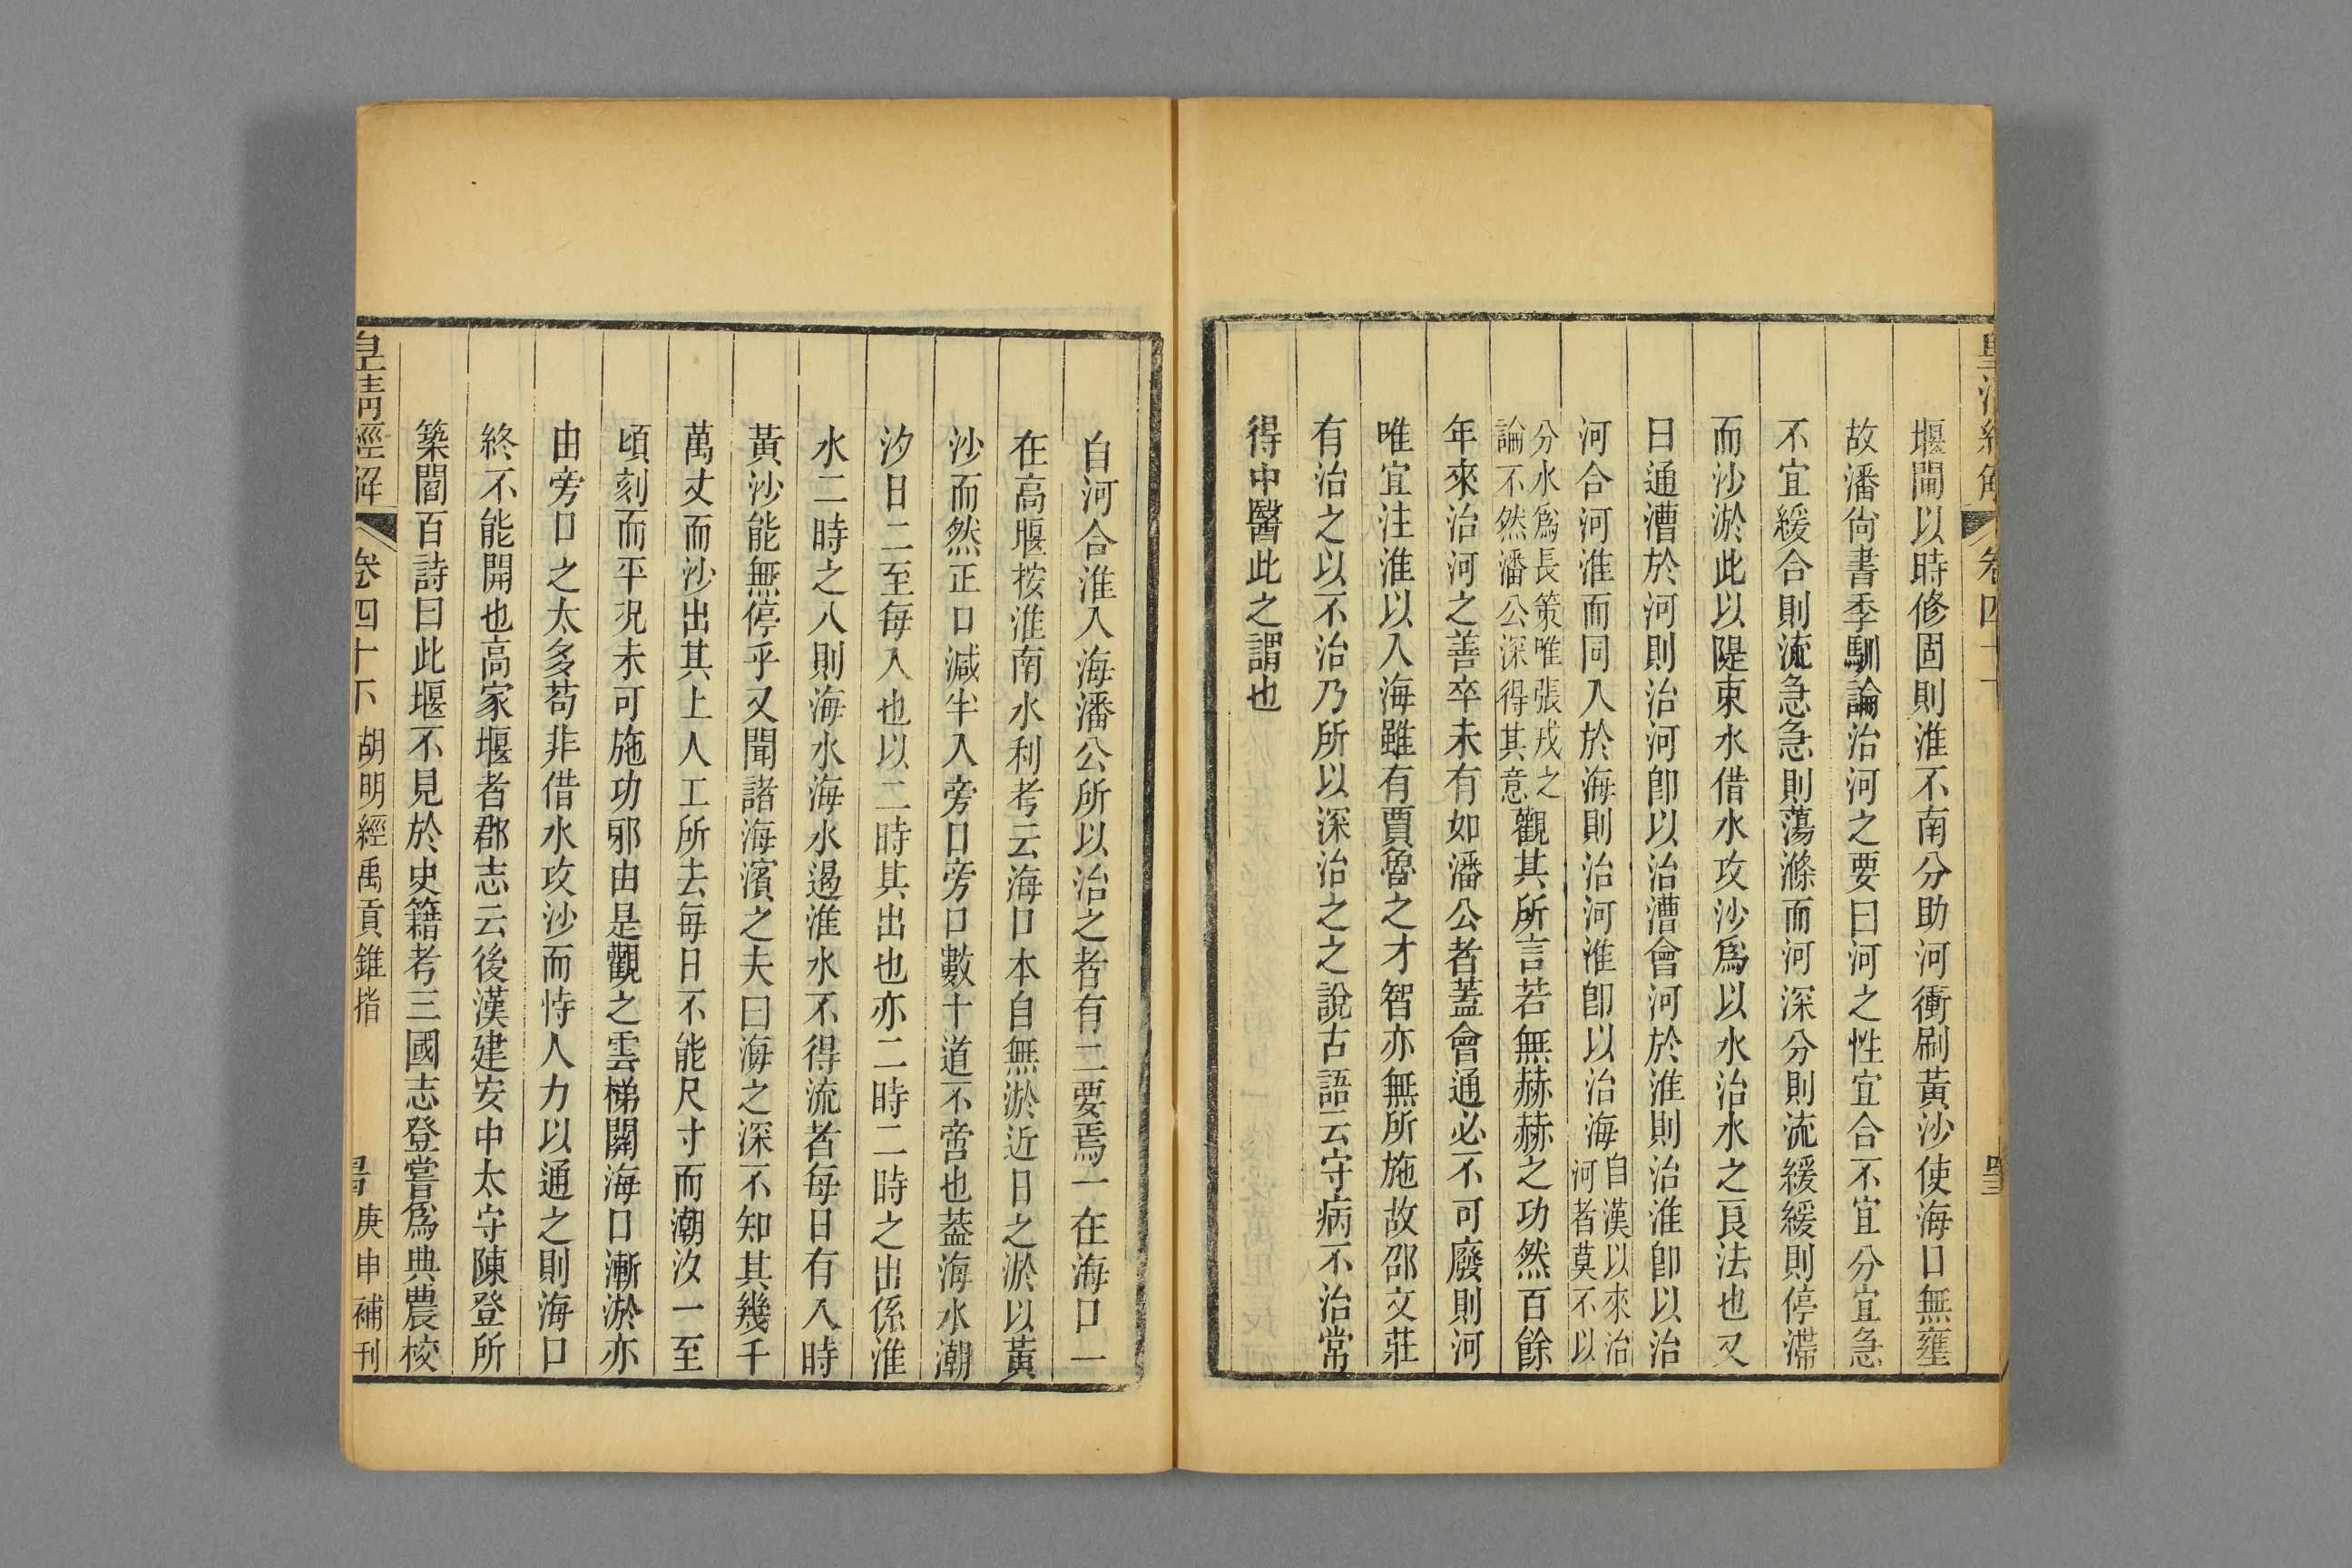 皇清經解
卷四十下
堰閘以時修固則淮不南分助河衝刷黃沙使海口無壅
故潘尙書季馴論治河之要曰河之性宜合不宜分宜急
不宜緩合則流急急則蕩滌而河深分則流緩緩則停滯
而沙淤此以隄束水借水攻沙爲以水治水之良法也又
曰通漕於河則治河卽以治漕會河於淮則治淮卽以治
河合河淮而同入於海則治河淮卽以治海自漢以來治河者莫不以
分水爲長策唯張戎之論不然潘公深得其意觀其所言若無赫赫之功然百餘
年來治河之善卒未有如潘公者蓋會通必不可廢則河
唯宜注淮以入海雖有賈魯之才智亦無所施故邵文莊
有治之以不治乃所以深治之之說古語云守病不治常
得中醫此之謂也
自河合淮入海潘公所以治之者有二要焉一在海口一
在高堰按淮南水利考云海口本自無淤近日之淤以黃
沙而然正口減半入旁口旁口數十道不啻也葢海水潮
汐日二至每入也以二時其出也亦二時二時之出係淮
水二時之入則海水海水遏淮水不得流者每日有八時
黃沙能無停乎又聞諸海濱之夫曰海之深不知其幾千
萬丈而沙出其上人工所去每日不能尺寸而潮汐一至
頃刻而平況未可施功邪由是觀之雲梯關海口漸淤亦
由旁口之太多苟非借水攻沙而恃人力以通之則海口
終不能開也高家堰者郡志云後漢建安中太守陳登所
築閻百詩曰此堰不見於史籍考三國志登嘗爲典農校
皇清經解
卷四十下
胡明經禹貢錐指
庚申補刊